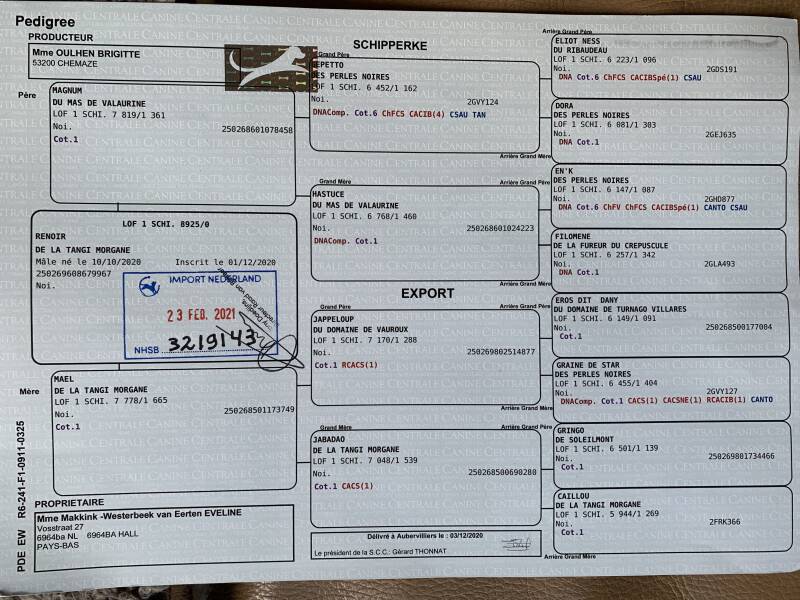 Pedigree
PRODUCTEUR
Mme OULHEN BRIGITTE
53200 CHEMAZE
Père
MAGNUM
DU MAS DE VALAURINE
LOF 1 SCHI. 7 819/1 361
Noi.
250268601078458
Cot.1
LOF 1 SCHI. 8925/0
RENOIR
DE LA TANGI MORGANE
Mâle né le 10/10/2020 Inscrit le 01/12/2020
250269608679967
Noi.
IMPORT NEDERLAND
23 FEB. 2021
NHSB 3219143
Mère
MAEL
DE LA TANGI MORGANE
LOF 1 SCHI. 7 778/1 665
Noi.
250268501173749
Cot.1
PROPRIETAIRE
Mme Makkink -Westerbeek van Eerten EVELINE
Vosstraat 27
6964ba NL 6964BA HALL
PAYS-BAS
PDE EW R6-241-F1-0911-0325
SCHIPPERKE
Grand Père
REPETTO
DES PERLES NOIRES
LOF 1 SCHI. 6 452/1 162
Noi.
2GVY124
DNAComp. Cot.6 ChFCS CACIB(4) CSAU TAN
Grand Mère
HASTUCE
DU MAS DE VALAURINE
LOF 1 SCHI. 6 768/1 460
Noi.
250268601024223
DNAComp. Cot.1
EXPORT
Grand Père
JAPPELOUP
DU DOMAINE DE VAUROUX
LOF 1 SCHI. 7 170/1 288
Noi.
250269802514877
Cot.1 RCACS(1)
Grand Mère
JABADAO
DE LA TANGI MORGANE
LOF 1 SCHI. 7 048/1 539
Noi.
250268500690280
Cot.1 CACS(1)
Délivré à Aubervilliers le : 03/12/2020
Le président de la S.C.C.: Gérard THONNAT
Arrière Grand Père
ELIOT NESS
DU RIBAUDEAU
LOF 1 SCHI. 6 223/1 096
Noi.
2GDS191
DNA Cot.6 ChFCS CACIBSpé(1) CSAU
DORA
DES PERLES NOIRES
LOF 1 SCHI. 6 081/1 303
Noi.
2GEJ635
DNA Cot.1
Arrière Grand Mère
Arrière Grand Père
EN'K
DES PERLES NOIRES
LOF 1 SCHI. 6 147/1 087
Noi.
2GHD877
DNA Cot.6 ChFV ChFCS CACIBSpé(1) CANTO CSAU
FILOMENE
DE LA FUREUR DU CREPUSCULE
LOF 1 SCHI. 6 257/1 342
Noi.
2GLA493
DNA Cot.1
Arrière Grand Mère
Arrière Grand Père
EROS DIT DANY
DU DOMAINE DE TURNAGO VILLARES
LOF 1 SCHI. 6 149/1 091
Noi.
250268500177004
Cot.1
GRAINE DE STAR
DES PERLES NOIRES
LOF 1 SCHI. 6 455/1 404
Noi.
2GVY127
DNAComp. Cot.1 CACS(1) CACSNE(1) RCACIB(1) CANTO
Arrière Grand Mère
Arrière Grand Père
GRINGO
DE SOLEILMONT
LOF 1 SCHI. 6 501/1 139
Noi.
250269801734466
Cot.1
CAILLOU
DE LA TANGI MORGANE
LOF 1 SCHI. 5 944/1 269
Noi.
2FRK366
Cot.1
Arrière Grand Mère